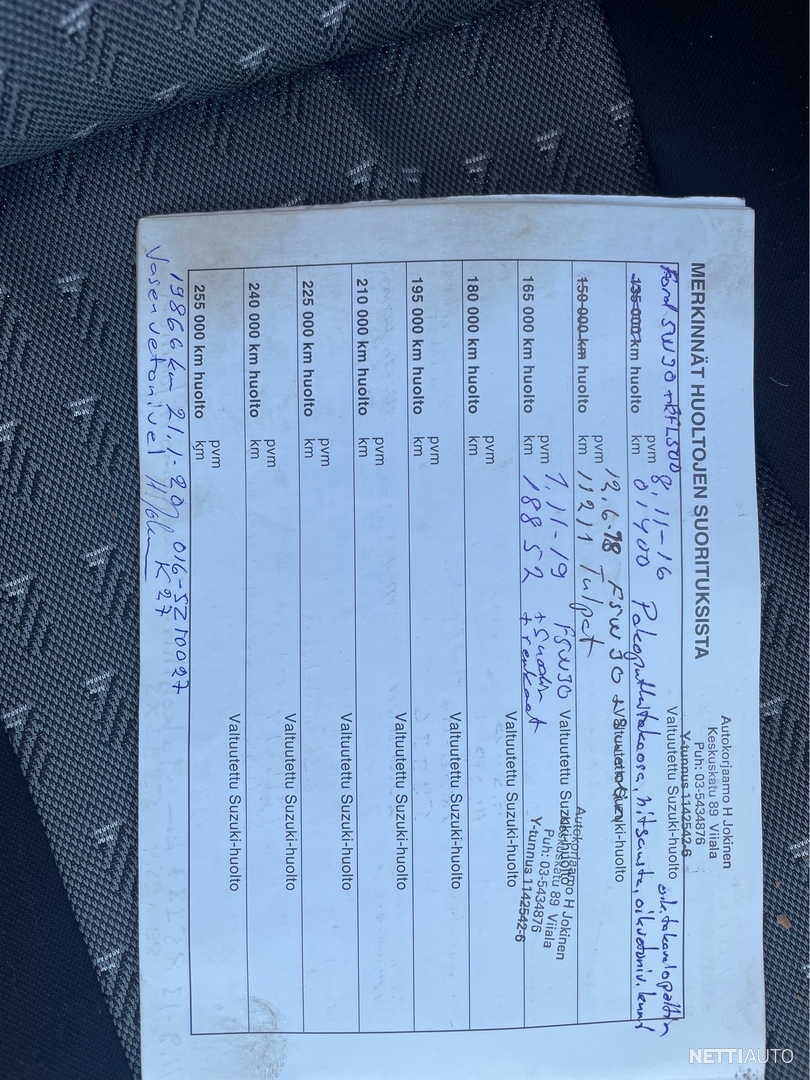 MERKINNÄT HUOLTOJEN SUORITUKSISTA
Autokorjaamo H Jokinen
Keskuskatu 89 Viiala
Puh: 03-5434876
Y-tunnus 1142542-6
Ford 5W30 +RFL500
135 000 km huolto
pvm 8.11-16
km 01400
Valtuutettu Suzuki-huolto
150 000 km huolto
pvm 12.6.18 F5W30
km 11211 Tulpat
Valtuutettu Suzuki-huolto
165 000 km huolto
pvm 7.11-19 F5W30
km 18852 +Suodin
+renkaat
Valtuutettu Suzuki-huolto
Autokorjaamo H Jokinen
Keskuskatu 89 Viiala
Puh: 03-5434876
Y-tunnus 1142542-6
180 000 km huolto
pvm
km
Valtuutettu Suzuki-huolto
195 000 km huolto
pvm
km
Valtuutettu Suzuki-huolto
210 000 km huolto
pvm
km
Valtuutettu Suzuki-huolto
225 000 km huolto
pvm
km
Valtuutettu Suzuki-huolto
240 000 km huolto
pvm
km
Valtuutettu Suzuki-huolto
255 000 km huolto
pvm
km
Valtuutettu Suzuki-huolto
19866 km 21.1-20 016-SZ10027
Vasen vetonivel K27
NETTIAUTO